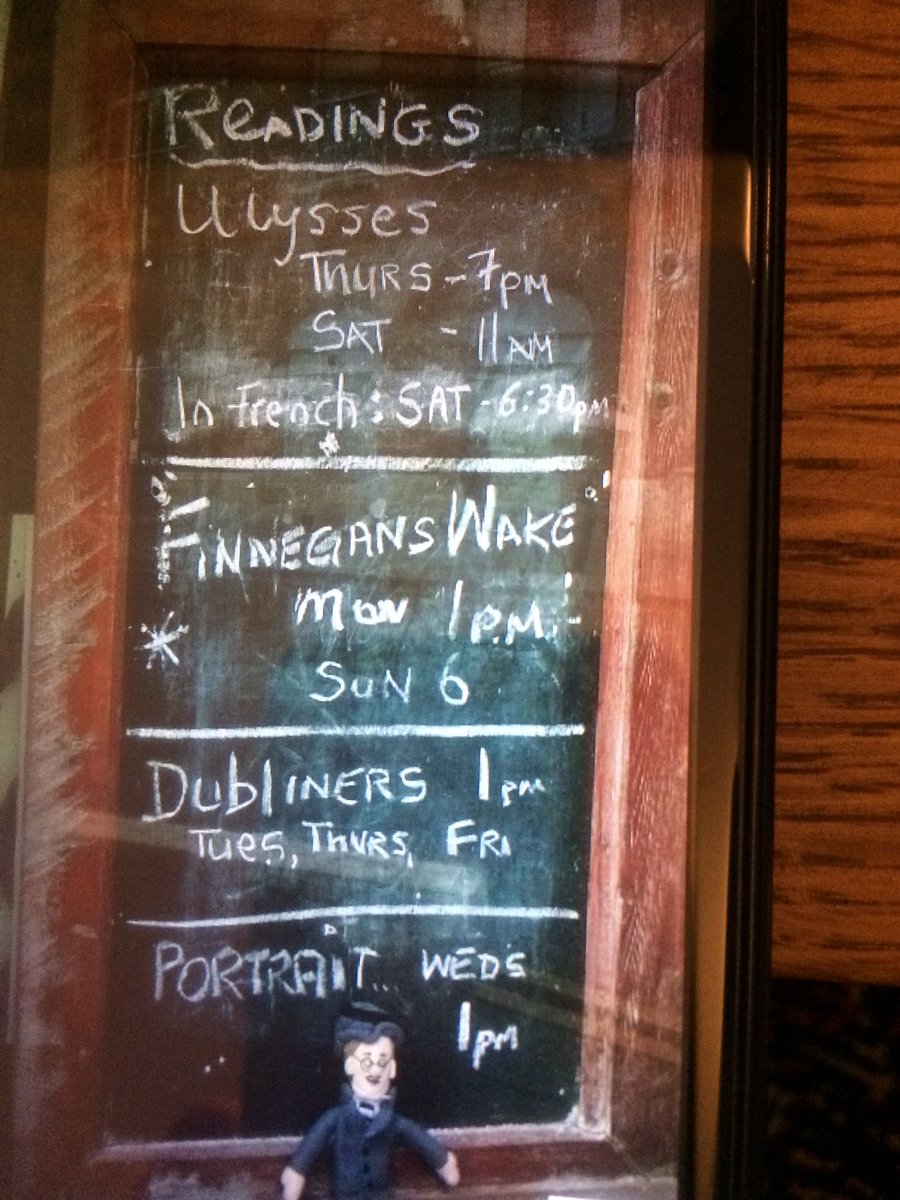 READINGS
Ulysses
THURS - 7PM
SAT - 11AM
In French: SAT - 6:30pm
FINNEGANS WAKE
Mon 1P.M.
SUN 6
DUBLINERS 1pm
Tues, THURS, FRI
PORTRAIT... WEDS
1pm